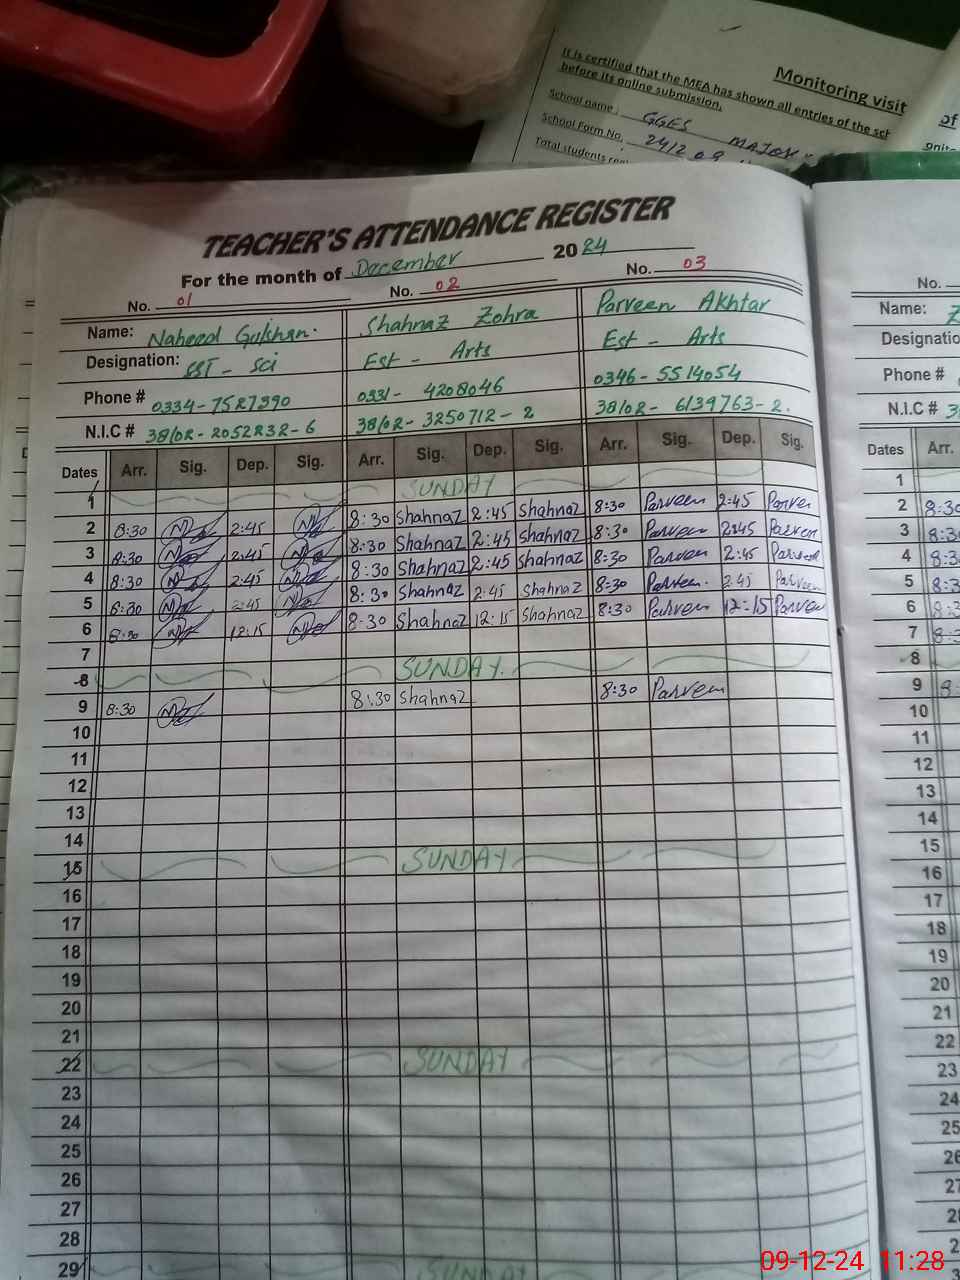 Monitoring visit
It is certified that the MEA has shown all entries of the sch
before its online submission.
School name: GGES MAJOK
School Form No.
Total students
TEACHER'S ATTENDANCE REGISTER
For the month of December 2024
No. 01 No. 02 No. 03 No.
Name: Naheed Gulshan. Shahnaz Zohra Parveen Akhtar Name:
Designation: SST - Sci Est - Arts Est - Arts Designatio
Phone # 0334-7527390 0331- 4208046 0346-5514054 Phone #
N.I.C # 38102-2052232-6 38102-3250712-2 38102-6139763-2. N.I.C #
Dates Arr. Sig. Dep. Sig. Arr. Sig. Dep. Sig. Arr. Sig. Dep. Sig. Dates Arr.
1 SUNDAY 1
2 8:30 2:45 8:30 Shahnaz 2:45 Shahnaz 8:30 Parveen 2:45 Parveen 2 8:30
3 8:30 2:45 8:30 Shahnaz 2:45 Shahnaz 8:30 Parveen 2:45 Parveen 3 8:3
4 8:30 2:45 8:30 Shahnaz 2:45 Shahnaz 8:30 Parveen 2:45 Parveen 4 8:3
5 8:30 2:45 8:30 Shahnaz 2:45 Shahnaz 8:30 Parveen. 2:45 Parveen 5 8:3
6 8:30 12:15 8:30 Shahnaz 12:15 Shahnaz 8:30 Parveen 12:15 Parveen 6 8:3
7 7 8:3
8 SUNDAY. 8
9 8:30 8:30 Shahnaz 8:30 Parveen 9 8:
10 10
11 11
12 12
13 13
14 14
15 SUNDAY 15
16 16
17 17
18 18
19 19
20 20
21 21
22 SUNDAY 22
23 23
24 24
25 25
26 26
27 27
28 28
29 SUNDAY
09-12-24 11:28